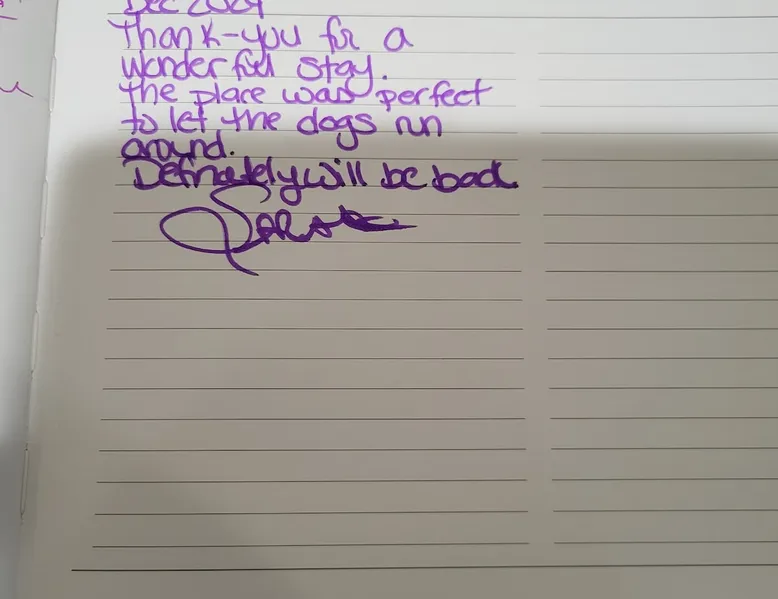 Thank-you for a
wonderful stay.
the place was perfect
to let the dogs run
around.
Definately will be back.
Sarah